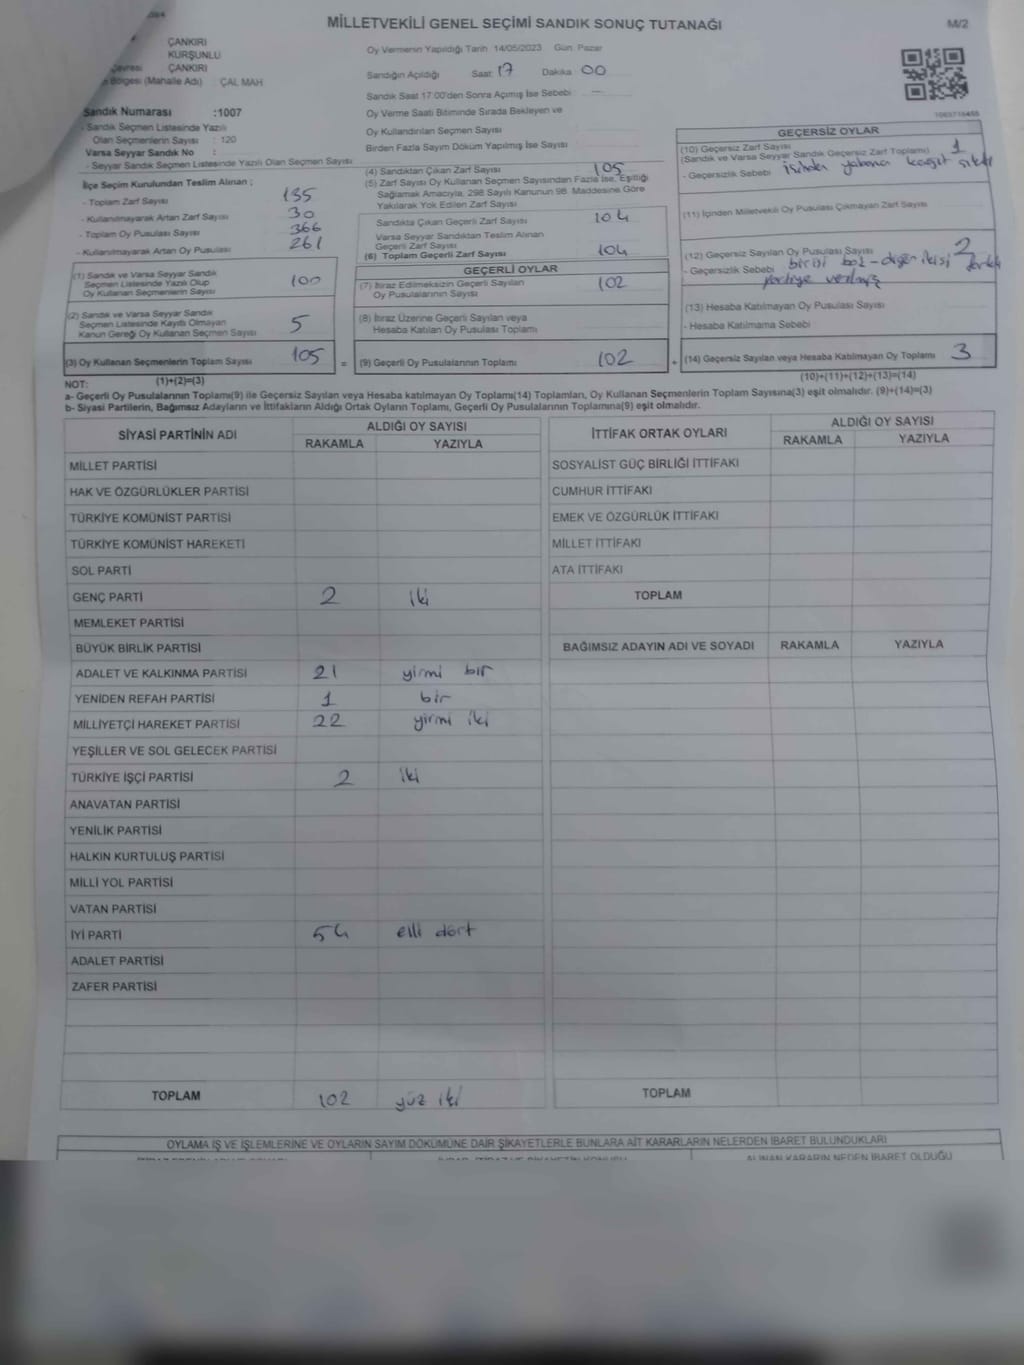 MİLLETVEKİLİ GENEL SEÇİMİ SANDIK SONUÇ TUTANAĞI
M/2
ÇANKIRI
KURŞUNLU
Çevresi ÇANKIRI
Bölgesi (Mahalle Adı) ÇAL MAH
Sandık Numarası :1007
- Sandık Seçmen Listesinde Yazılı
Olan Seçmenlerin Sayısı : 120
Varsa Seyyar Sandık No :
- Seyyar Sandık Seçmen Listesinde Yazılı Olan Seçmen Sayısı
Oy Vermenin Yapıldığı Tarih 14/05/2023 Gün Pazar
Sandığın Açıldığı Saat 17 Dakika 00
Sandık Saat 17:00'den Sonra Açımış İse Sebebi —
Oy Verme Saati Bitiminde Sırada Bekleyen ve
Oy Kullandırılan Seçmen Sayısı
Birden Fazla Sayım Döküm Yapılmış İse Sayısı
İlçe Seçim Kurulundan Teslim Alınan ;
- Toplam Zarf Sayısı 135
- Kullanılmayarak Artan Zarf Sayısı 30
- Toplam Oy Pusulası Sayısı 366
- Kullanılmayarak Artan Oy Pusulası 261
(1) Sandık ve Varsa Seyyar Sandık
Seçmen Listesinde Yazılı Olup
Oy Kullanan Seçmenlerin Sayısı 100
(2) Sandık ve Varsa Seyyar Sandık
Seçmen Listesinde Kayıtlı Olmayan
Kanun Gereği Oy Kullanan Seçmen Sayısı 5
(3) Oy Kullanan Seçmenlerin Toplam Sayısı 105 =
(1)+(2)=(3)
(4) Sandıktan Çıkan Zarf Sayısı 105
(5) Zarf Sayısı Oy Kullanan Seçmen Sayısından Fazla İse, Eşitliği
Sağlamak Amacıyla, 298 Sayılı Kanunun 98. Maddesine Göre
Yakılarak Yok Edilen Zarf Sayısı
Sandıkta Çıkan Geçerli Zarf Sayısı 104
Varsa Seyyar Sandıktan Teslim Alınan
Geçerli Zarf Sayısı
(6) Toplam Geçerli Zarf Sayısı 104
GEÇERLİ OYLAR
(7) İtiraz Edilmeksizin Geçerli Sayılan
Oy Pusulalarının Sayısı 102
(8) İtiraz Üzerine Geçerli Sayılan veya
Hesaba Katılan Oy Pusulası Toplamı
(9) Geçerli Oy Pusulalarının Toplamı 102 +
GEÇERSİZ OYLAR
(10) Geçersiz Zarf Sayısı 1
(Sandık ve Varsa Seyyar Sandık Geçersiz Zarf Toplamı)
- Geçersizlik Sebebi içinden yabancı kağıt çıktı
(11) İçinden Milletvekili Oy Pusulası Çıkmayan Zarf Sayısı
(12) Geçersiz Sayılan Oy Pusulası Sayısı 2
- Geçersizlik Sebebi birisi boş - diğer ikisi farklı
partiye verilmiş
(13) Hesaba Katılmayan Oy Pusulası Sayısı
- Hesaba Katılmama Sebebi
(14) Geçersiz Sayılan veya Hesaba Katılmayan Oy Toplamı 3
(10)+(11)+(12)+(13)=(14)
NOT:
a- Geçerli Oy Pusulalarının Toplamı(9) ile Geçersiz Sayılan veya Hesaba katılmayan Oy Toplamı(14) Toplamları, Oy Kullanan Seçmenlerin Toplam Sayısına(3) eşit olmalıdır. (9)+(14)=(3)
b- Siyasi Partilerin, Bağımsız Adayların ve İttifakların Aldığı Ortak Oyların Toplamı, Geçerli Oy Pusulalarının Toplamına(9) eşit olmalıdır.
SİYASİ PARTİNİN ADI
ALDIĞI OY SAYISI
RAKAMLA YAZIYLA
MİLLET PARTİSİ
HAK VE ÖZGÜRLÜKLER PARTİSİ
TÜRKİYE KOMÜNİST PARTİSİ
TÜRKİYE KOMÜNİST HAREKETİ
SOL PARTİ
GENÇ PARTİ 2 iki
MEMLEKET PARTİSİ
BÜYÜK BİRLİK PARTİSİ
ADALET VE KALKINMA PARTİSİ 21 yirmi bir
YENİDEN REFAH PARTİSİ 1 bir
MİLLİYETÇİ HAREKET PARTİSİ 22 yirmi iki
YEŞİLLER VE SOL GELECEK PARTİSİ
TÜRKİYE İŞÇİ PARTİSİ 2 iki
ANAVATAN PARTİSİ
YENİLİK PARTİSİ
HALKIN KURTULUŞ PARTİSİ
MİLLİ YOL PARTİSİ
VATAN PARTİSİ
İYİ PARTİ 54 elli dört
ADALET PARTİSİ
ZAFER PARTİSİ
TOPLAM 102 yüz iki
İTTİFAK ORTAK OYLARI
ALDIĞI OY SAYISI
RAKAMLA YAZIYLA
SOSYALİST GÜÇ BİRLİĞİ İTTİFAKI
CUMHUR İTTİFAKI
EMEK VE ÖZGÜRLÜK İTTİFAKI
MİLLET İTTİFAKI
ATA İTTİFAKI
TOPLAM
BAĞIMSIZ ADAYIN ADI VE SOYADI RAKAMLA YAZIYLA
TOPLAM
OYLAMA İŞ VE İŞLEMLERİNE VE OYLARIN SAYIM DÖKÜMÜNE DAİR ŞİKAYETLERLE BUNLARA AİT KARARLARIN NELERDEN İBARET BULUNDUKLARI
ALINAN KARARIN NEDEN İBARET OLDUĞU